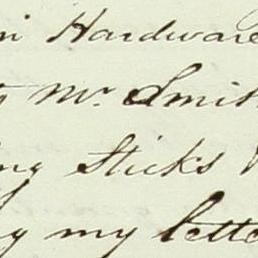 in Hardware
Mr. Smit
ing Sticks
my letter